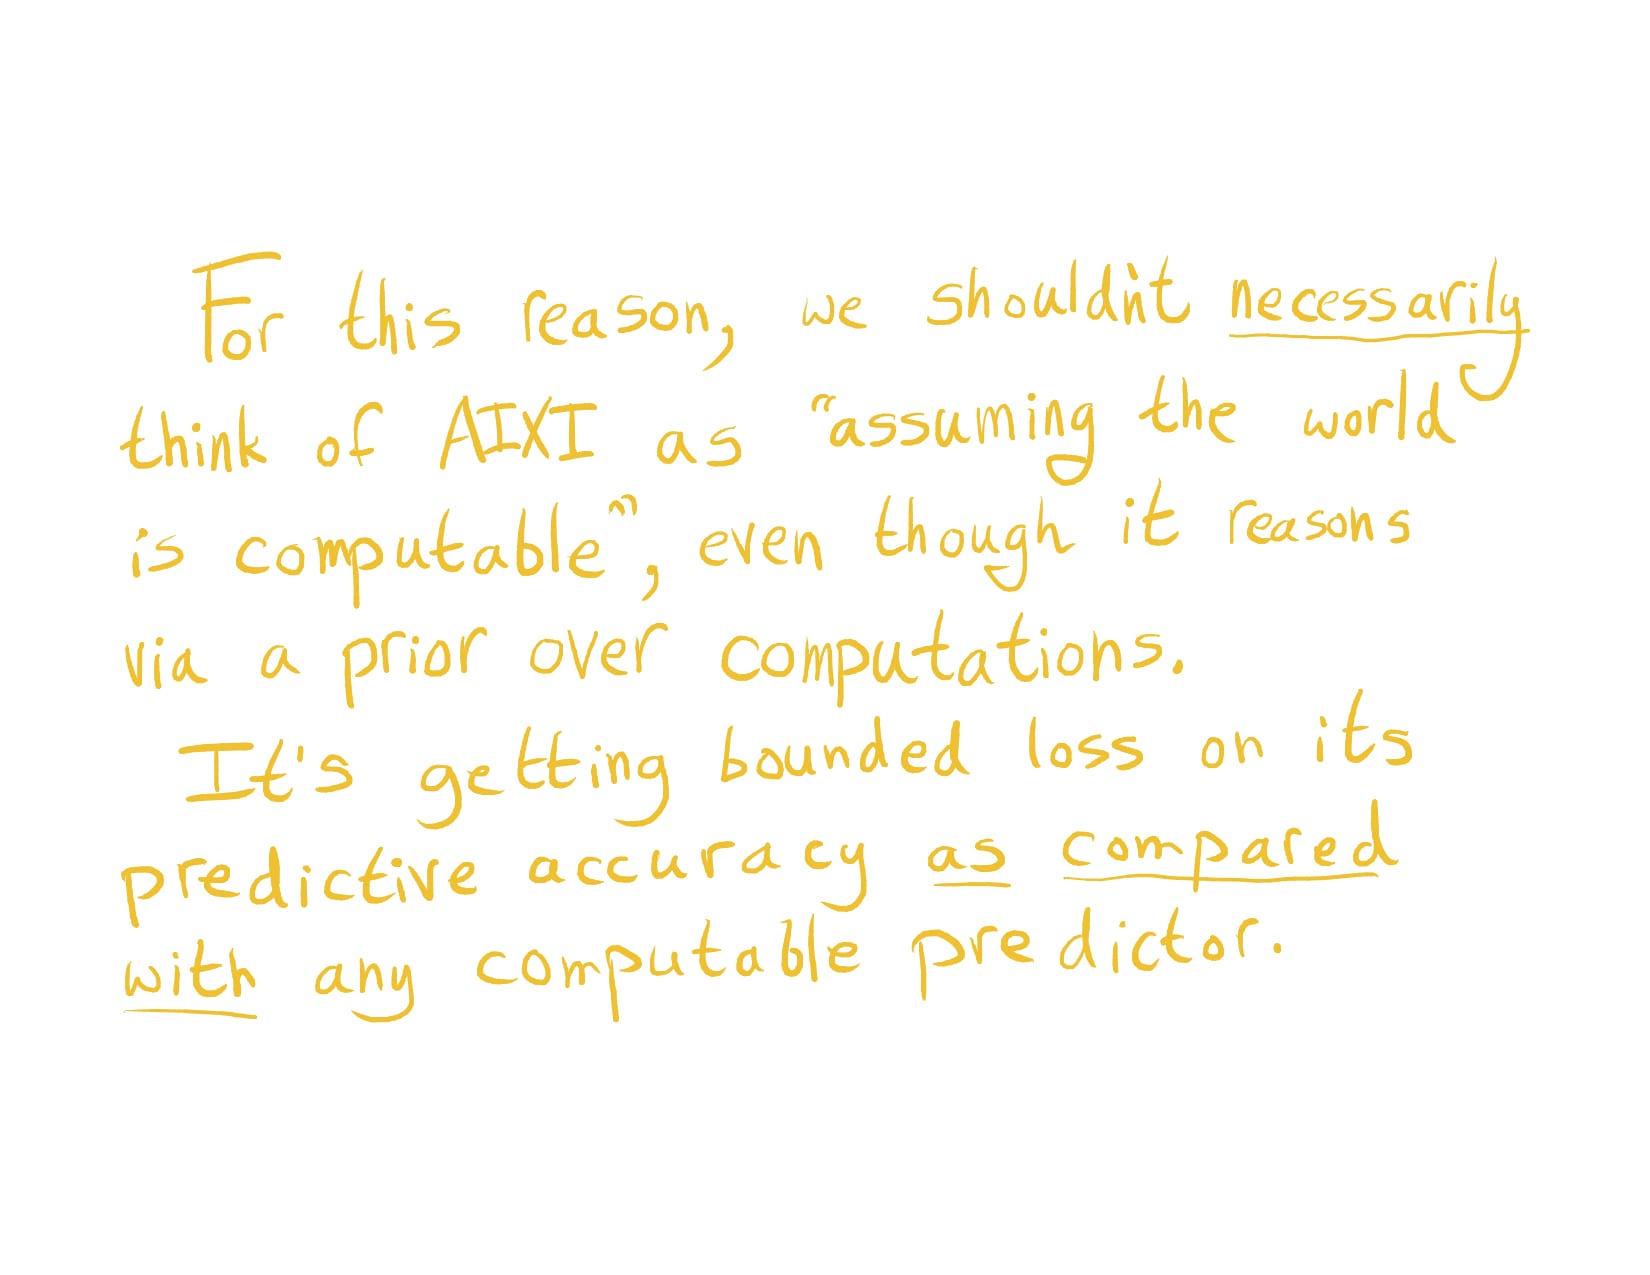 For this reason, we shouldn't necessarily
think of AIXI as "assuming the world
is computable", even though it reasons
via a prior over computations.
It's getting bounded loss on its
predictive accuracy as compared
with any computable predictor.